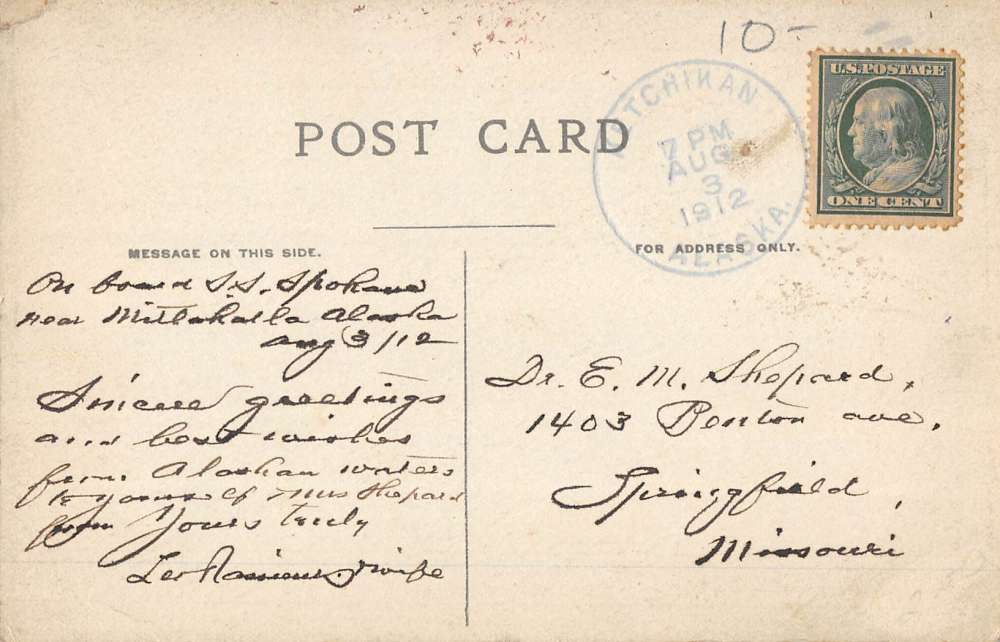 10-
U.S. POSTAGE
ONE CENT
KETCHIKAN
7 PM
AUG
3
1912
ALASKA.
POST CARD
MESSAGE ON THIS SIDE.
FOR ADDRESS ONLY.
On board S.S. Spokane
near Mitlakatla Alaska
aug 3/12
Sincere greetings
and best wishes
from Alaskan waters
to yourself Mrs Shepard
from Yours truly
Leo & wife
Dr. E. M. Shepard,
1403 Benton ave,
Springfield,
Missouri